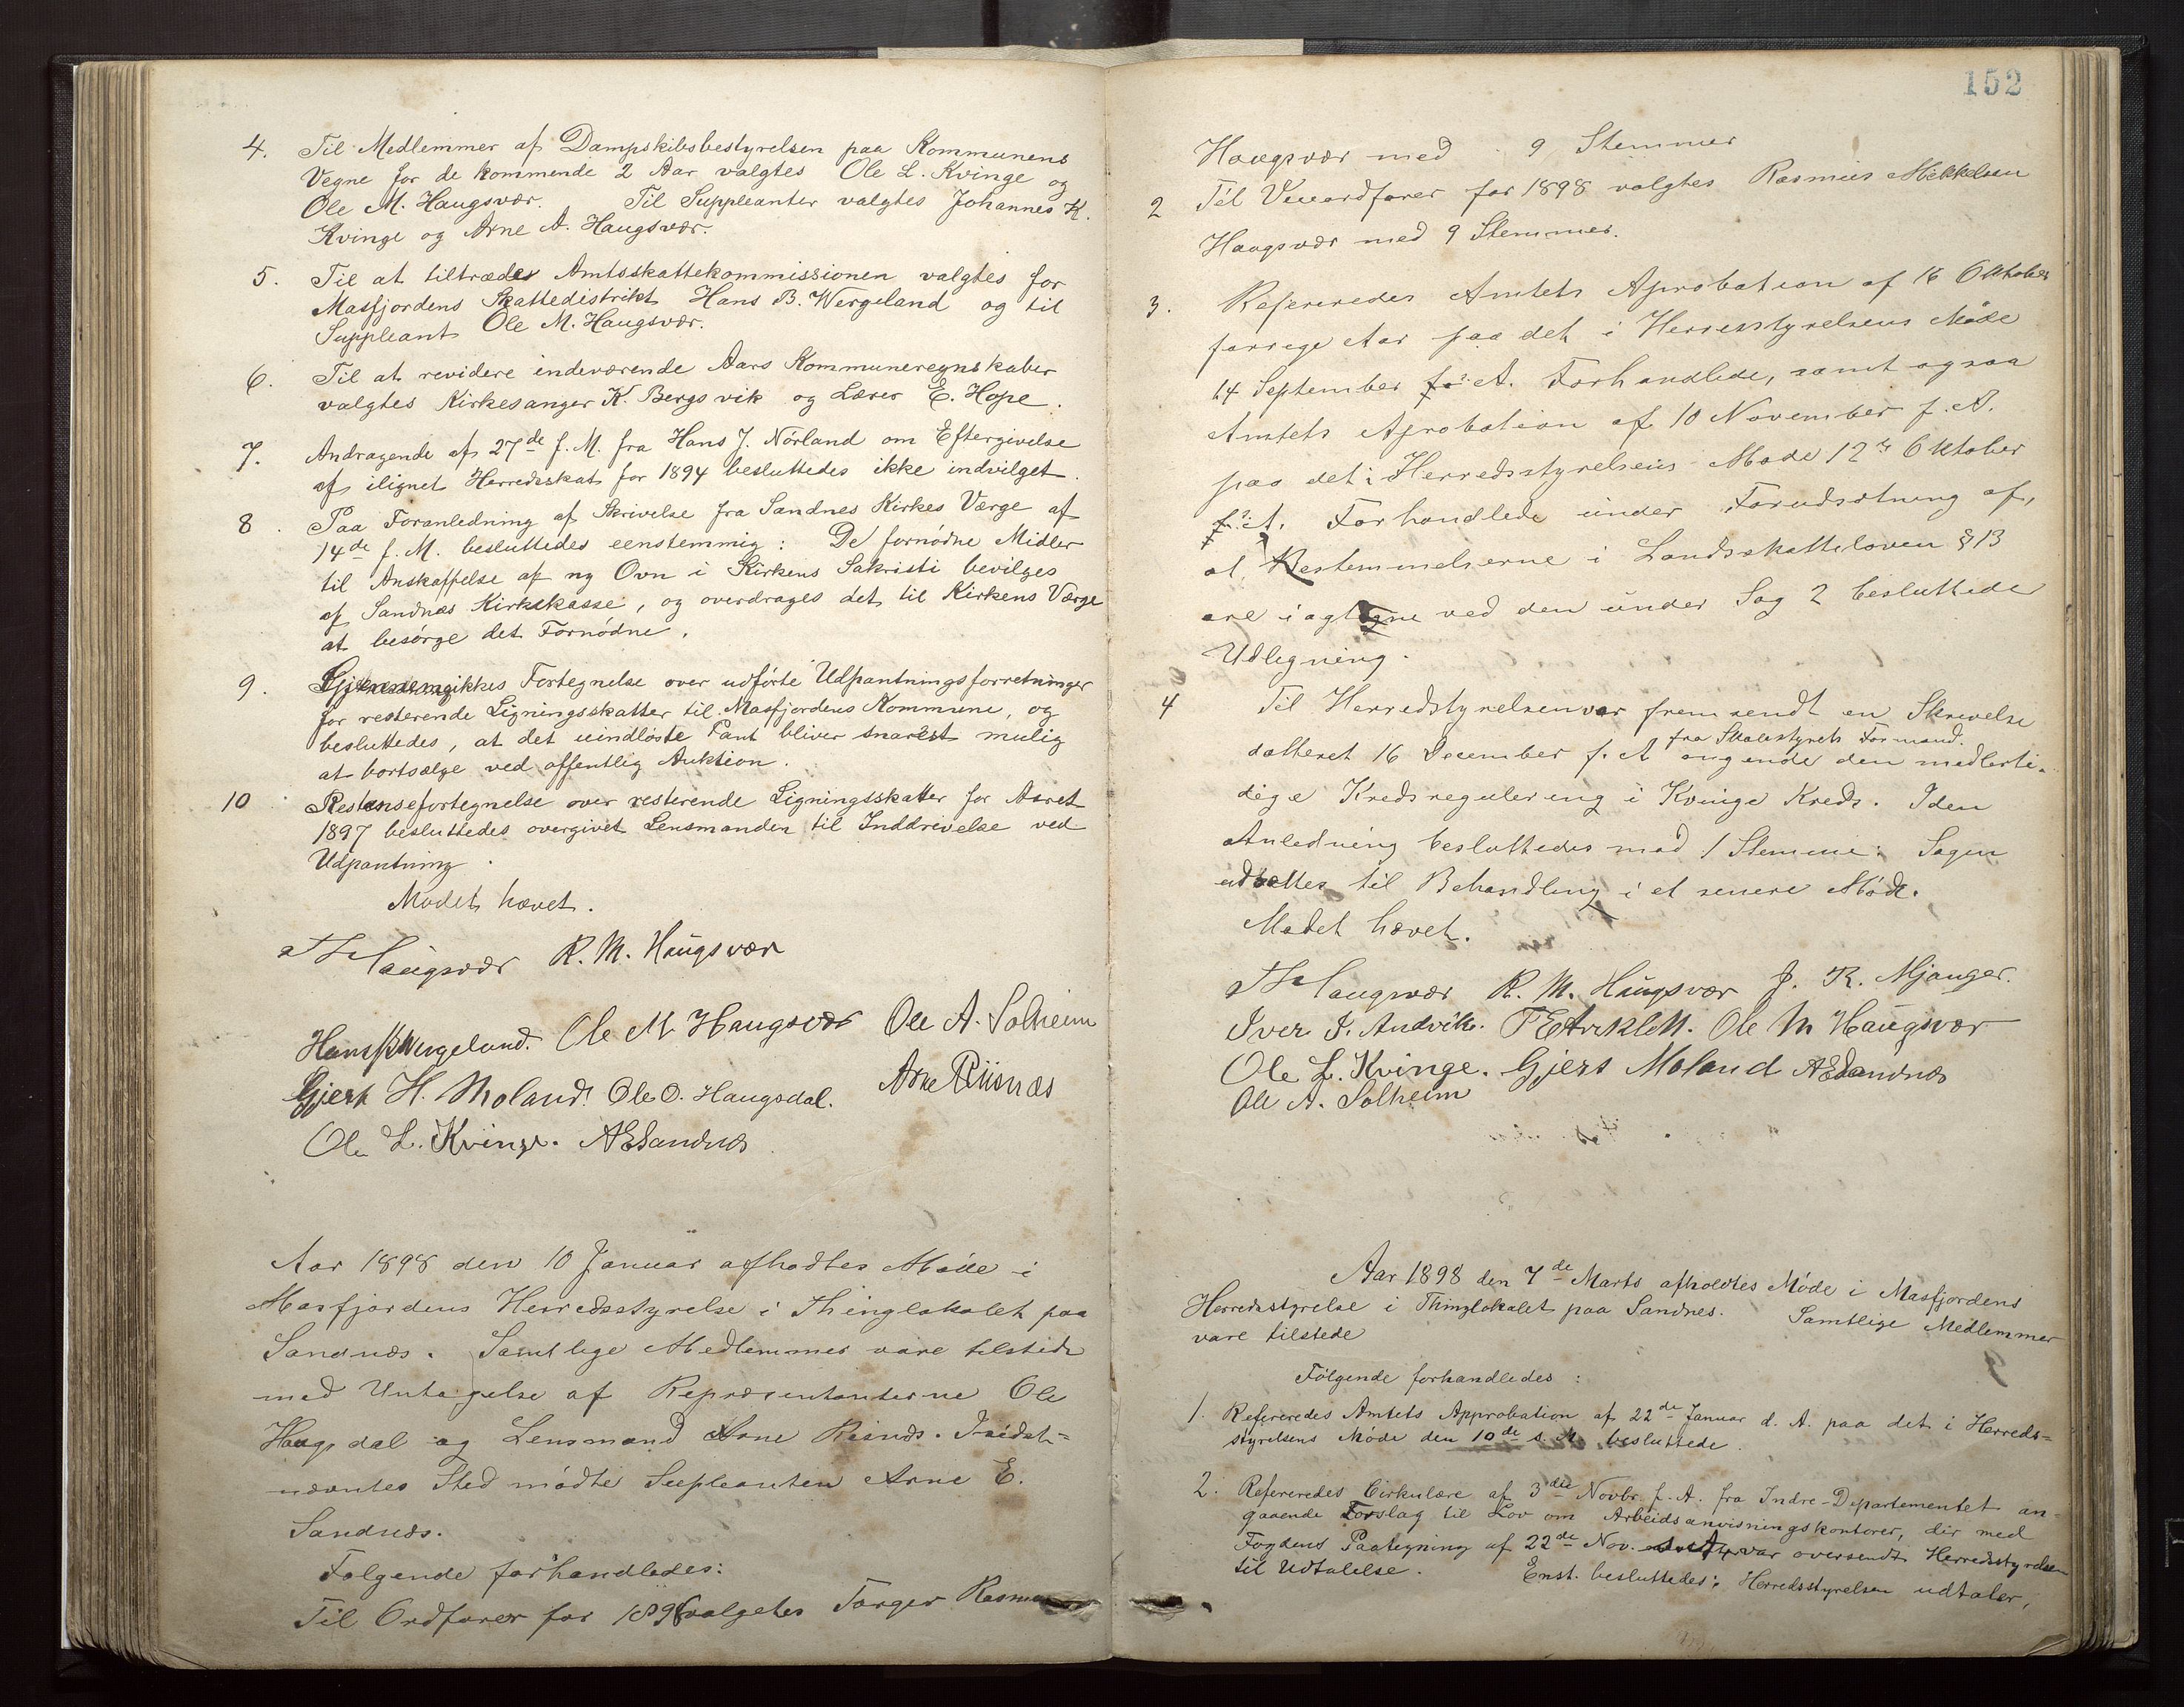 4. Til Medlemmer af Dampskibsbestyrelsen paa Kommunens
Vegne for de kommende 2 Aar valgtes Ole L. Kvinge og
Ole M. Haugsvær. Til Suppleanter valgtes Johannes K.
Kvinge og Arne A. Haugsvær.
5. Til at tiltræde Amtsskattekommissionen valgtes for
Masfjordens Skattedistrikt Hans B. Wergeland og til
Suppleant Ole M. Haugsvær.
6. Til at revidere indeværende Aars Kommuneregnskaber
valgtes Kirkesanger K. Bergsvik og Lærer E. Hope.
7. Andragende af 27de f. M. fra Hans J. Nórland om Eftergivelse
af ilignet Herredsskat for 1894 besluttedes ikke indvilget.
8. Paa Foranledning af Skrivelse fra Sandnes Kirkes Værge af
14de f. M. besluttedes eenstemmig: De fornódne Midler
til Anskaffelse af ny Ovn i Kirkens Sakristi bevilges
af Sandnæs Kirkekasse, og overdrages det til Kirkens Værge
at besórge det Fornódne.
9. Gjennemgikkes Fortegnelse over udfórte Udpantningsforretninger
for resterende Ligningsskatter til Masfjordens Kommune, og
besluttedes, at det uindlóste Pant bliver snarest mulig
at bortsælge ved offentlig Auktion.
10. Restansefortegnelse over resterende Ligningsskatter for Aaret
1897 besluttedes overgivet Lensmanden til Inddrivelse ved
Udpantning.
Mødet hævet.
Haugsvær R. M. Haugsvær
Hans B Wergeland. Ole M Haugsvær Ole A. Solheim
Gjert H. Moland. Ole O. Haugsdal. Arne Riisnæs
Ole L. Kvinge. AESandnæs
Aar 1898 den 10 Januar afholdtes Møde i
Masfjordens Herredsstyrelse i Thinglokalet paa
Sandnæs. Samtlige Medlemmer vare tilstede
med Untagelse af Repræsentanterne Ole
Haugsdal og Lensmand Arne Risnæs. I sidst=
nævntes Sted mødte Supleanten Arne E.
Sandnæs.
Følgende forhandledes:
Til Ordfører for 1898 valgtes Torger Rasmus
152
Haugsvær med 9 Stemmer
2 Til Viceordfører for 1898 valgtes Rasmus Mikkelsen
Haugsvær med 9 Stemmer.
3. Refereredes Amtets Aprobation af 16 Oktober
forrige Aar paa det i Herresstyrelsens Møde
14 September f. A. Forhandlede, samt ogsaa
Amtets Aprobation af 10 November f. A.
paa det i Herredsstyrelsens Møde 12 Oktober
f. A. Forhandlede under Forudsætning af,
at Bestemmelserne i Landsskatteloven § 13
ere iagttagne ved den under Sag 2 besluttede
Udligning.
4 Til Herredstyrelsen var fremsendt en Skrivelse
fra Skolestyrets Formand.
datteret 16 December f. A angende den medlerti-
dige Kredsregulering i Kvinge Kreds. I den
Anledning besluttedes mod 1 Stemme: Sagen
udsættes til Behandling i et senere Møde.
Mødet hævet.
Haugsvær R. M. Haugsvær J. R. Mjanger.
Iver I. Andvik. Ole M Haugsvær
Ole L. Kvinge. Gjert Moland AESandnæs
Ole A. Solheim
Aar 1898 den 7de Marts afholdtes Móde i Masfjordens
Herredsstyrelse i Thinglokalet paa Sandnes. Samtlige Medlemmer
vare tilstede
Fólgende forhandledes:
1. Refereredes Amtets Approbation af 22de Januar d. A. paa det i Herreds=
styrelsens Móde den 10de s. M. besluttede.
2. Refereredes Cirkulære af 3die Novbr. f. A. fra Indre-Departementet an-
gaaende Forslag til Lov om Arbeidsanvisningskontorer, der med
Fogdens Paategning af 22de Nov. var oversendt Herredsstyrelsen
til Udtalelse. Enst. besluttedes: Herredsstyrelsen udtaler,